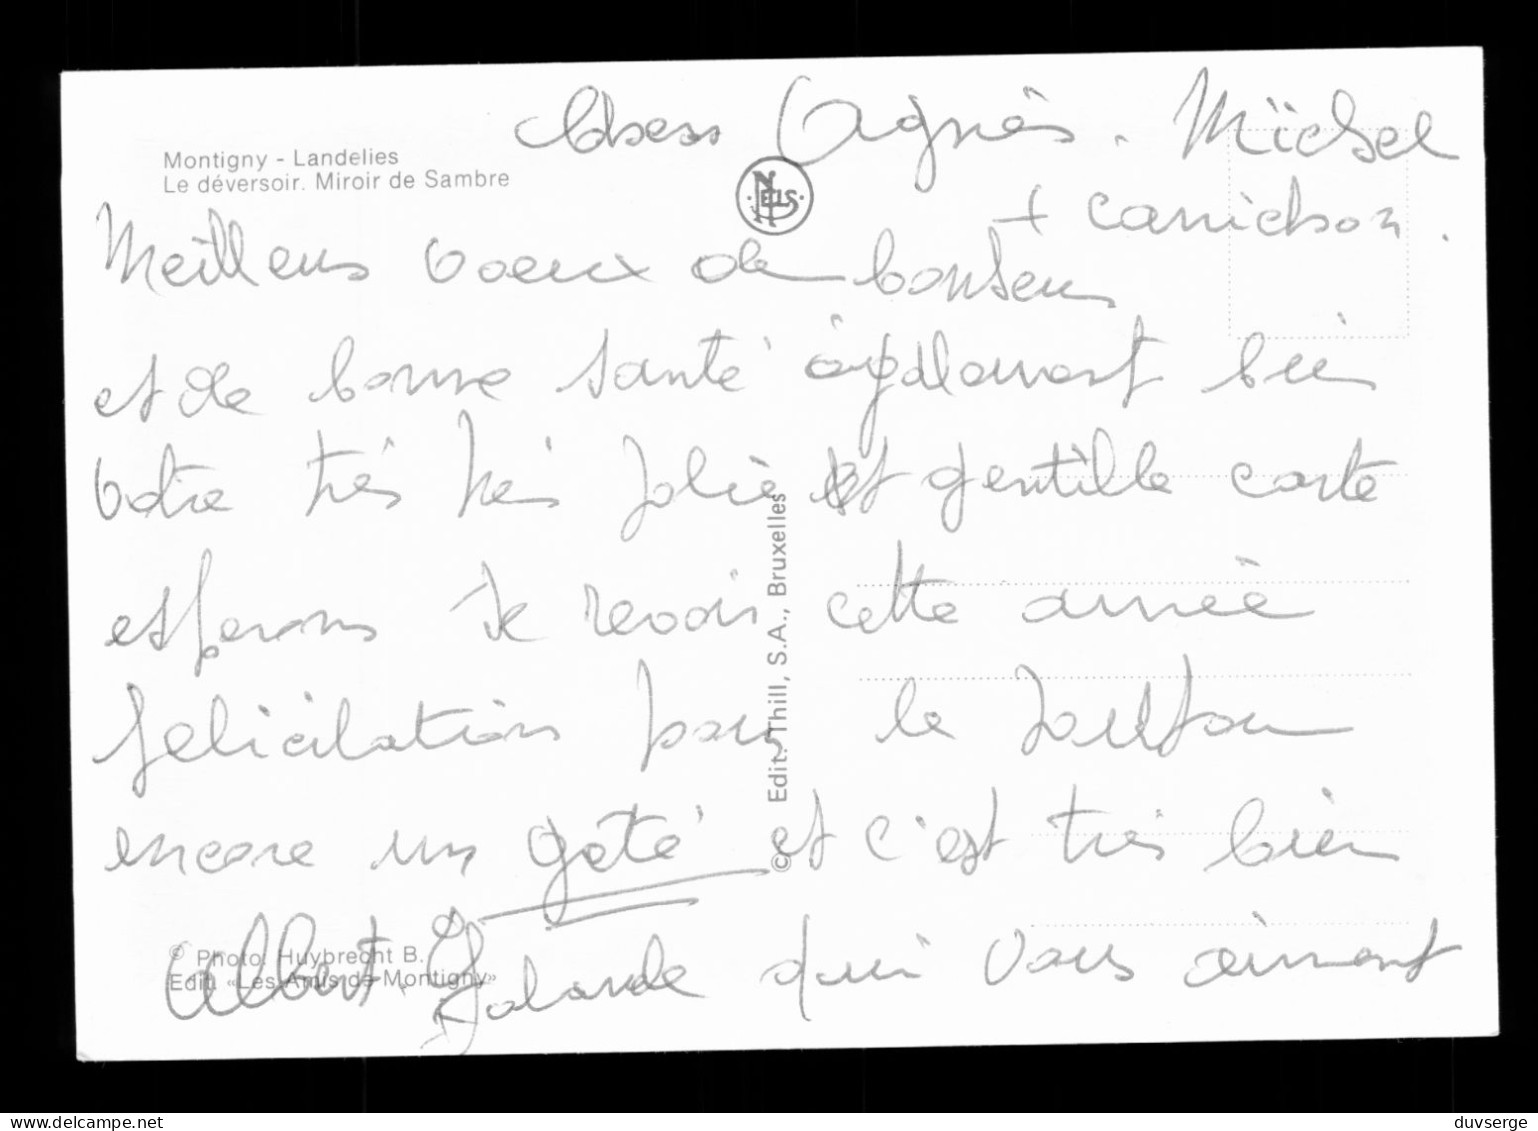 Montigny - Landelies
Le déversoir. Miroir de Sambre
Chers Agnès. Michel
+ cannichon.
NELS
Meilleurs voeux de bonheur
et de bonne santé également bien
votre très très jolie et gentille carte
esperons te revoir cette année
felicitation pour le
encore un gâté et c'est très bien
Albert. Yolande qui vous aiment
© Edit. Thill, S.A., Bruxelles
© Photo: Huybrecht B.
Edit. «Les Amis de Montigny»
delcampe.net
duvserge